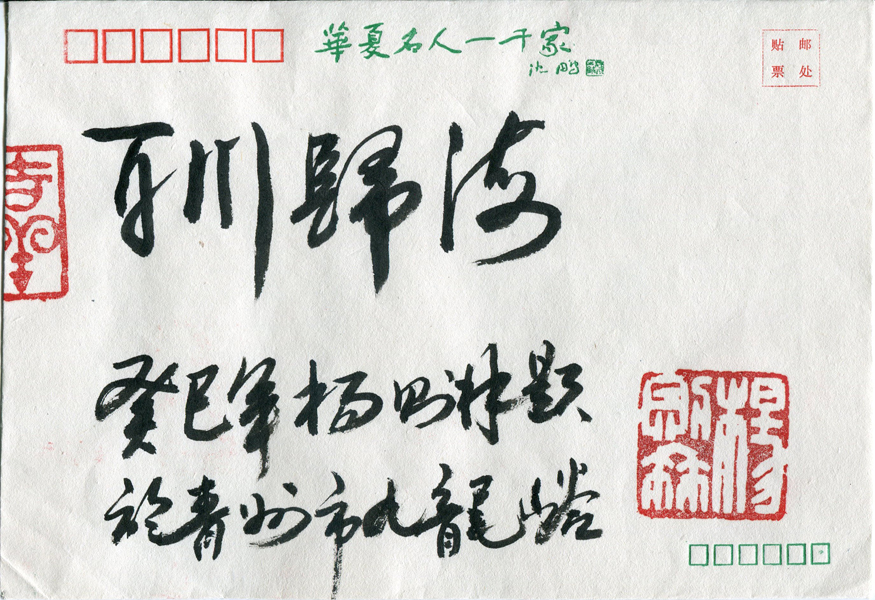 華夏名人一千家
沈鹏
贴 邮
票 处
百川歸海
癸巳年杨则林题
於青州市九龍峪